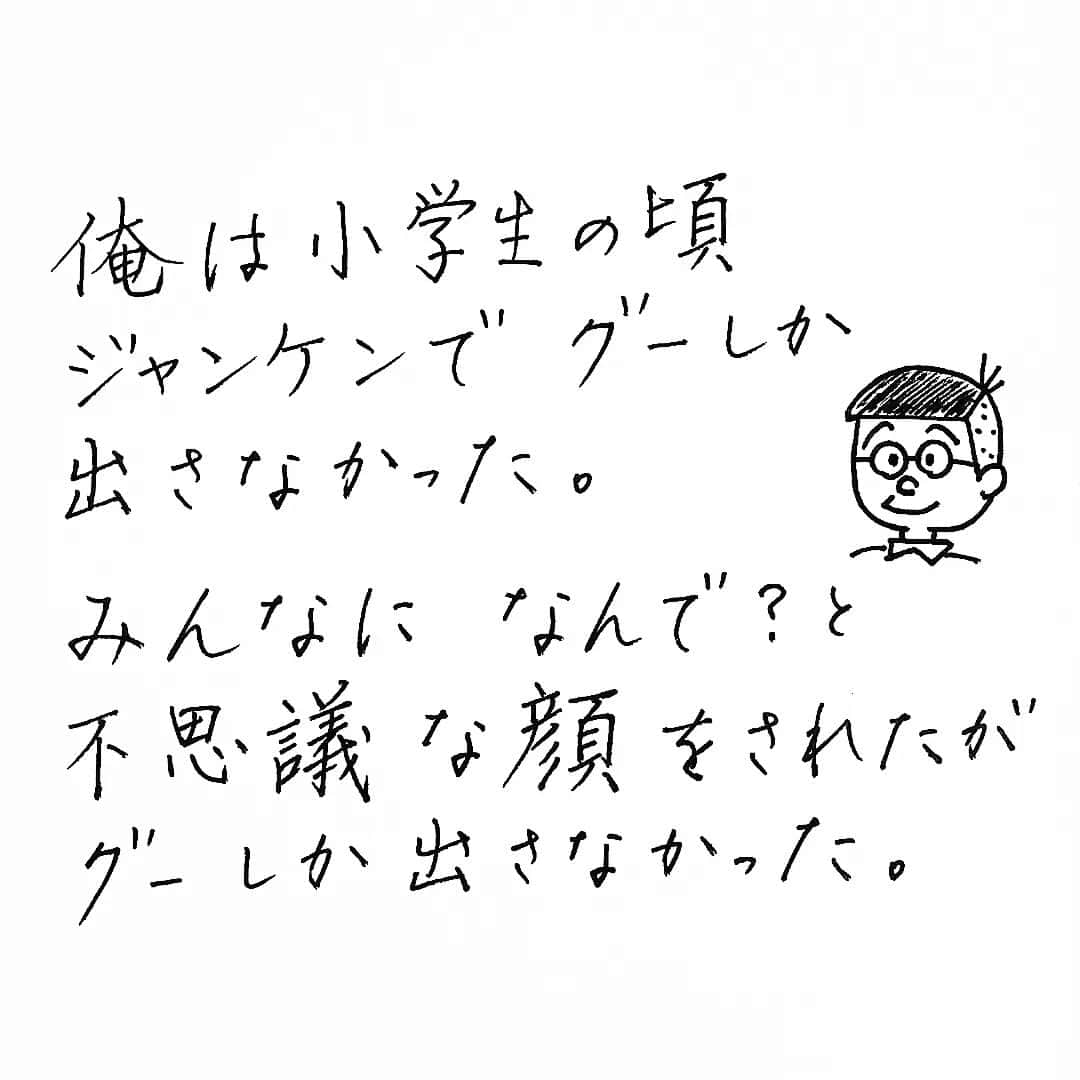 俺は小学生の頃
ジャンケンで グーしか
出さなかった。
みんなに なんで?と
不思議な顔をされたが
グーしか出さなかった。